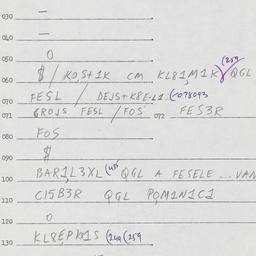 030 —
040 —
050 O
060 $ / KO,S+1K CM KL81M1K) (259 QGL
070 FESL / DEJS+K8E-L1 (-078093
071 GROJS FESL /FOS 072 FES3R
080 FOS
090 $
100 BAR1L3XL (495 QGL A FESELE ... VAN
110 C15B3R QGL POM1N1C1
120 O
130 KL8EPK01S (249 (259